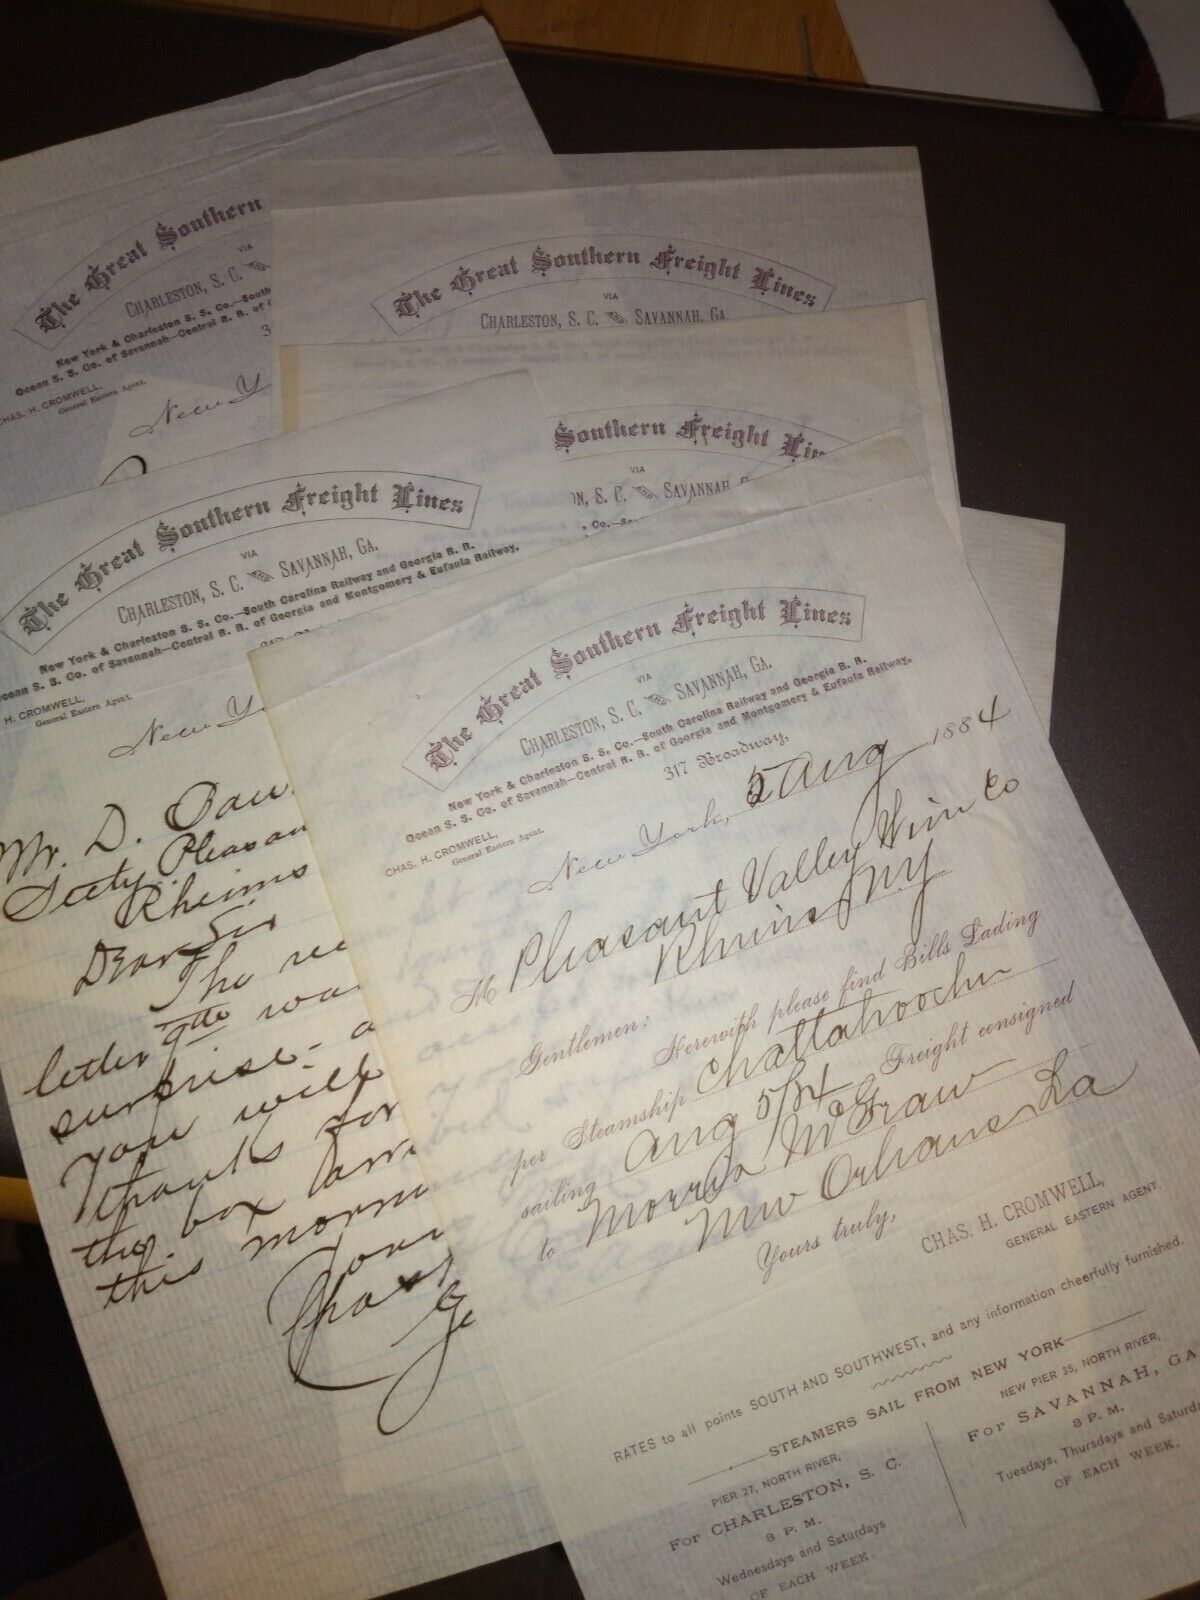 The Great Southern
VIA
CHARLESTON, S. C.
New York & Charleston S. S. Co.—South
Ocean S. S. Co. of Savannah—Central R. R. of
CHAS. H. CROMWELL,
General Eastern Agent.
New Y
The Great Southern Freight Lines
VIA
CHARLESTON, S. C. SAVANNAH, GA.
Southern Freight Lin
VIA
N, S. C. SAVANNAH
The Great Southern Freight Lines
VIA
CHARLESTON, S. C. SAVANNAH, GA.
New York & Charleston S. S. Co.—South Carolina Railway and Georgia R. R.
Ocean S. S. Co. of Savannah—Central R. R. of Georgia and Montgomery & Eufaula Railway.
H. CROMWELL,
General Eastern Agent.
New Yo
Mr. D.
Secty. Pleasan
Rheims
Dear Sir
The re
letter 9th wa
surprise - a
You will
thanks for
the box
this morn
Your
Chas
Ge
The Great Southern Freight Lines
VIA
CHARLESTON, S. C. SAVANNAH, GA.
New York & Charleston S. S. Co.—South Carolina Railway and Georgia R. R.
Ocean S. S. Co. of Savannah—Central R. R. of Georgia and Montgomery & Eufaula Railway.
317 Broadway,
CHAS. H. CROMWELL,
General Eastern Agent.
New York, 5 Aug 1884
M Pleasant Valley Wine Co
Rheims NY
Gentlemen: Herewith please find Bills Lading
per Steamship Chattahoochee
sailing Aug 5/84 Freight consigned
to Morris McGraw
New Orleans La
Yours truly,
CHAS. H. CROMWELL,
GENERAL EASTERN AGENT.
RATES to all points SOUTH AND SOUTHWEST, and any information cheerfully furnished.
STEAMERS SAIL FROM NEW YORK
PIER 27, NORTH RIVER,
For CHARLESTON, S. C.
3 P. M.
Wednesdays and Saturdays
OF EACH WEEK.
NEW PIER 35, NORTH RIVER,
For SAVANNAH, GA
3 P. M.
Tuesdays, Thursdays and Saturda
OF EACH WEEK.